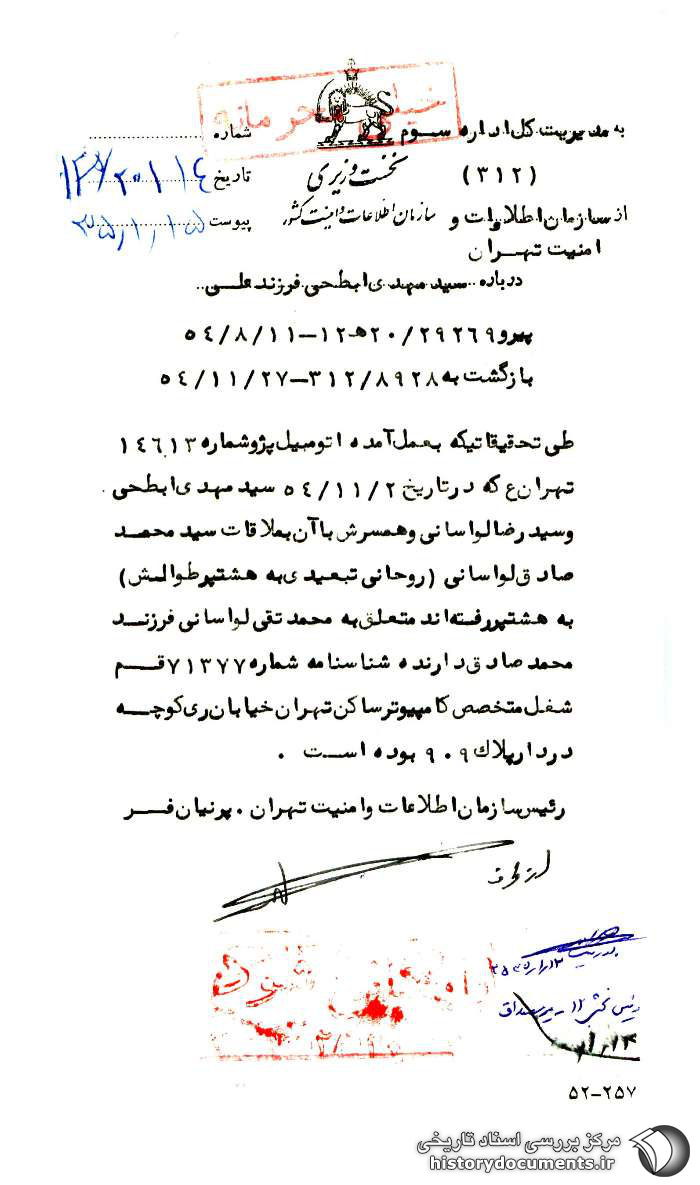 خیلی محرمانه
به مدیریت کل اداره سوم
(۳۱۲)
از سازمان اطلاعات و
امنیت تهران
نخست وزیری
سازمان اطلاعات و امنیت کشور
شماره
تاریخ
پیوست
درباره سید مهدی ابطحی فرزند علی
پیرو ۲۰/۲۹۲۶۹ هـ ۱۲-۵۴/۸/۱۱
بازگشت به ۳۱۲/۸۹۲۸-۵۴/۱۱/۲۷
طی تحقیقاتیکه بعمل آمده اتومبیل پژو شماره ۱۴۶۱۳
تهران ع که در تاریخ ۵۴/۱۱/۲ سید مهدی ابطحی
و سید رضا لواسانی و همسرش با آن بملاقات سید محمد
صادق لواسانی (روحانی تبعیدی به هشتپر طوالش)
به هشتپر رفته‌اند متعلق به محمد تقی لواسانی فرزند
محمد صادق دارنده شناسنامه شماره ۷۱۳۷۷ قم
شغل متخصص کامپیوتر ساکن تهران خیابان ری کوچه
دردار پلاک ۹۰۹ بوده است .
رئیس سازمان اطلاعات و امنیت تهران . پرنیان فر
از طرف
۵۲-۲۵۷
مرکز بررسی اسناد تاریخی
historydocuments.ir